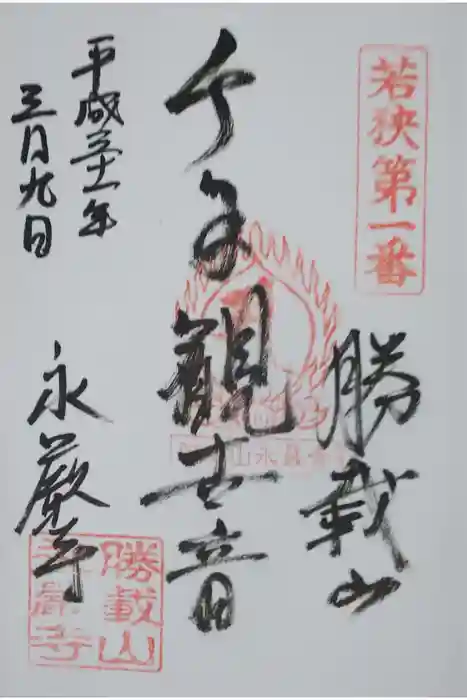 若狭第一番
勝載山
千手観世音
平成三十一年
三月九日
永厳寺
勝載山
永厳寺